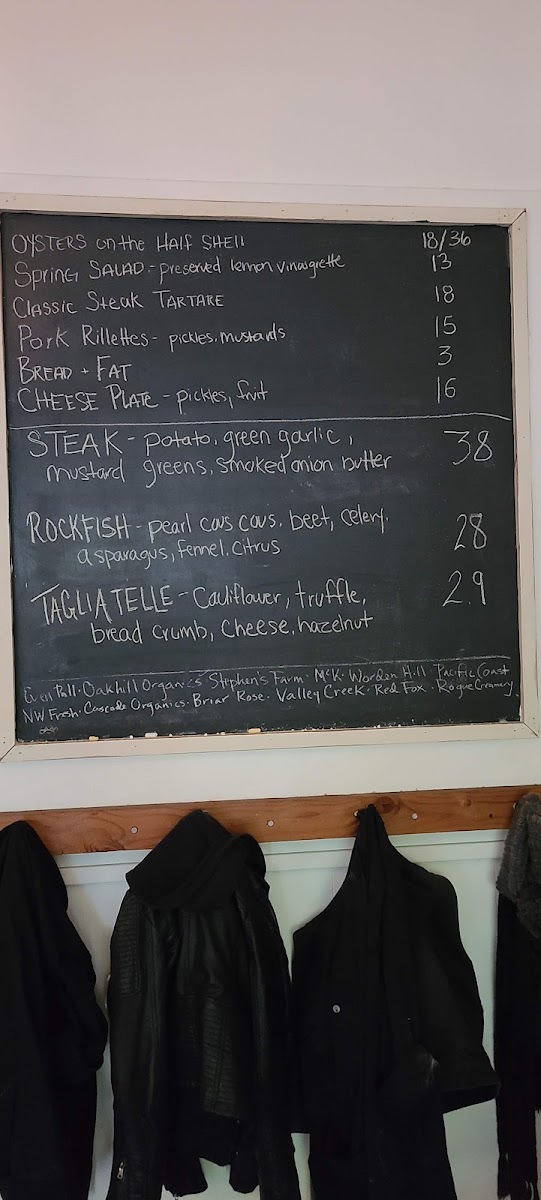 OYSTERS on the HALF SHEll 18/36
Spring SALAD - preserved lemon vinaigrette 13
Classic Steak TARTARE 18
Pork Rillettes - pickles, mustards 15
BREAD + FAT 3
CHEESE PLATE - pickles, fruit 16
STEAK - potato, green garlic, 38
mustard greens, smoked onion butter
ROCKFISH - pearl cous cous, beet, celery, 28
asparagus, fennel, citrus
TAGLIATELLE - Cauliflower, truffle, 29
bread crumb, cheese, hazelnut
Pull · Oakhill Organics · Stephen's Farm · McK · Worden Hill · Pacific Coast
NW Fresh · Cascade Organics · Briar Rose · Valley Creek · Red Fox · Rogue Creamery